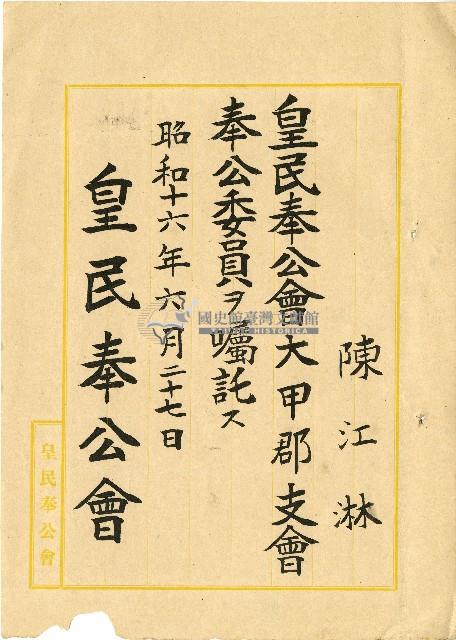 陳江淋
皇民奉公會大甲郡支會
奉公委員ヲ囑託ス
昭和十六年六月二十七日
皇民奉公會
皇民奉公會
國史館臺灣文獻館
TAIWAN HISTORICA